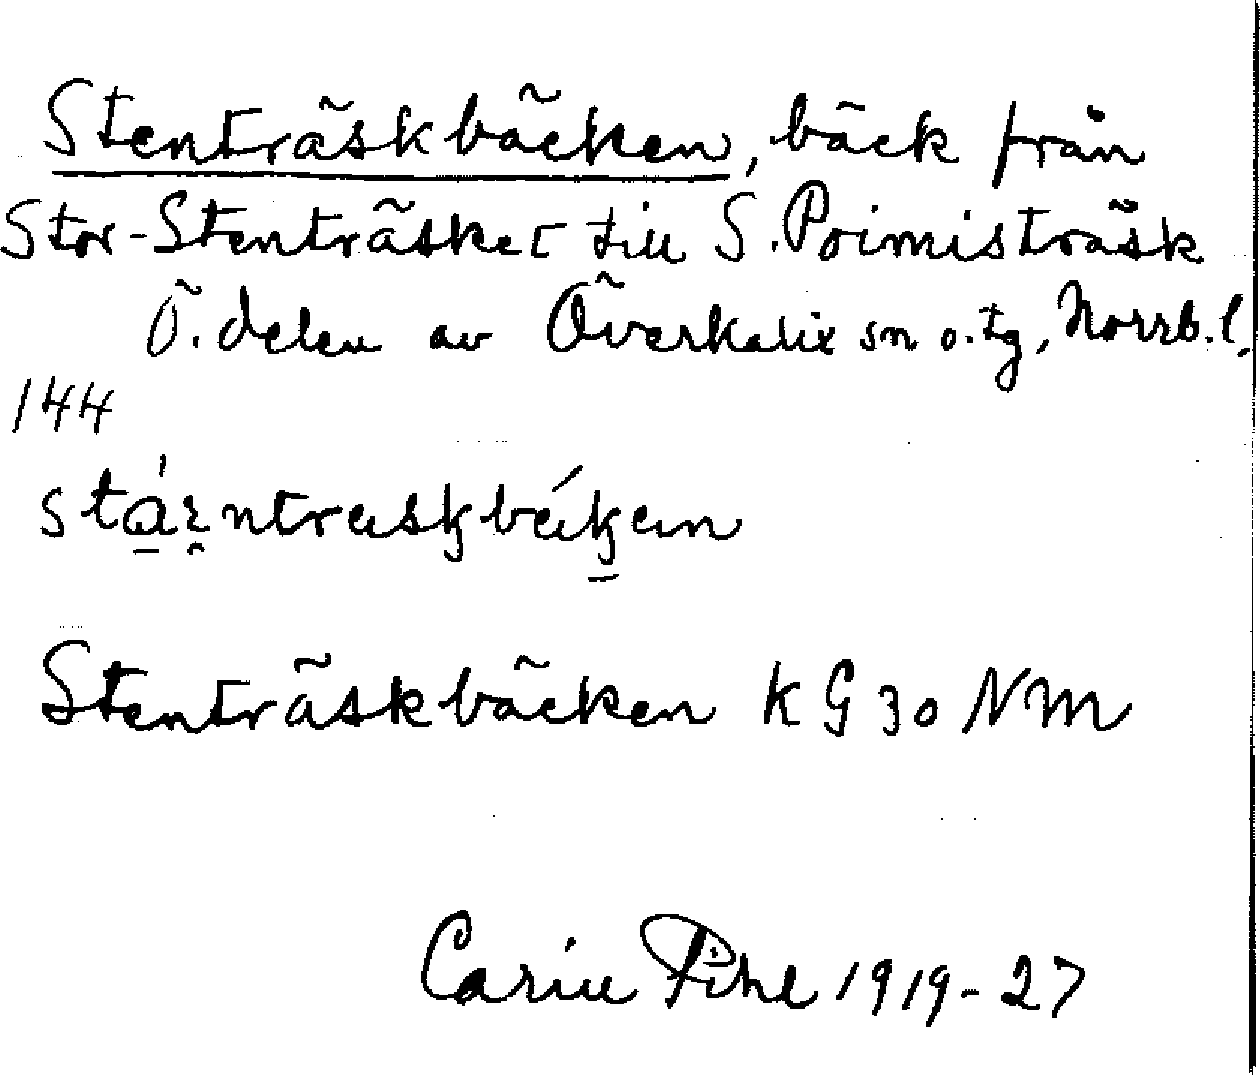 Stenträskbäcken, bäck från
Stor-Stenträsket till S. Poimisträsk
Ö. delen av Överkalix sn o. tg, Norrb. l.
144
Stenträskbäcken KG 30 NM
Carin Pihl 1919-27